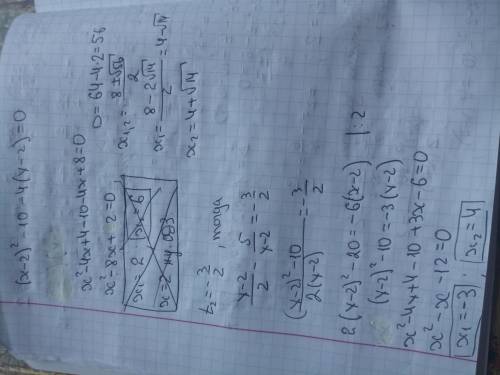 (x-2)² -10 -4(x-2)=0
x²-4x+4-10-4x+8=0
x²-8x+2=0
D=64-4·2=56
x₁,₂=(8±√56)/2
x₁=(8-2√14)/2=4-√14
x₂=4+√14
t₂=-3/2, тогда
(x-2)/2 - 5/(x-2) = -3/2
((x-2)²-10)/(2(x-2)) = -3/2
2(x-2)²-20=-6(x-2) |:2
(x-2)²-10=-3(x-2)
x²-4x+4-10+3x-6=0
x²-x-12=0
x₁=-3; x₂=4